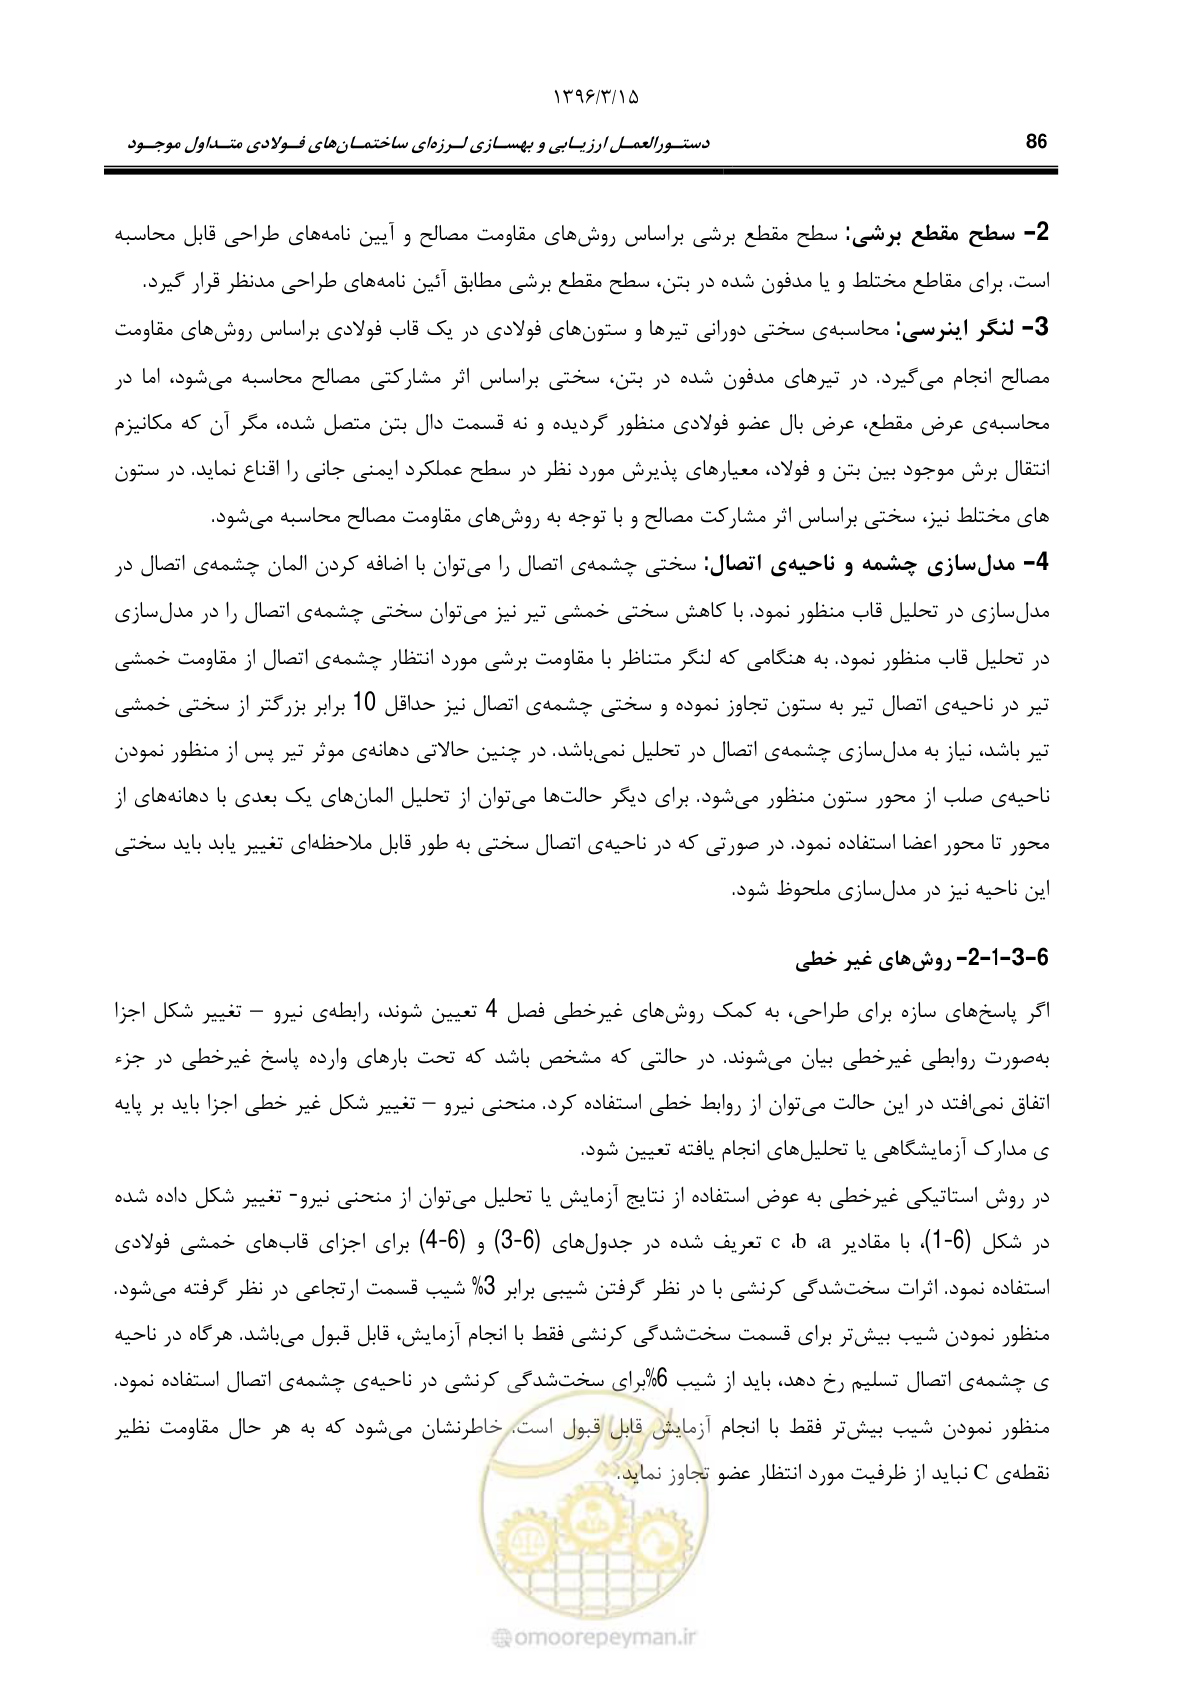 ۱۳۹۶/۳/۱۵
86 دستــورالعمــل ارزیــابی و بهســازی لــرزه‌ای ساختمــان‌های فــولادی متــداول موجــود
2- سطح مقطع برشی: سطح مقطع برشی براساس روش‌های مقاومت مصالح و آیین نامه‌های طراحی قابل محاسبه
است. برای مقاطع مختلط و یا مدفون شده در بتن، سطح مقطع برشی مطابق آئین نامه‌های طراحی مدنظر قرار گیرد.
3- لنگر اینرسی: محاسبه‌ی سختی دورانی تیرها و ستون‌های فولادی در یک قاب فولادی براساس روش‌های مقاومت
مصالح انجام می‌گیرد. در تیرهای مدفون شده در بتن، سختی براساس اثر مشارکتی مصالح محاسبه می‌شود، اما در
محاسبه‌ی عرض مقطع، عرض بال عضو فولادی منظور گردیده و نه قسمت دال بتن متصل شده، مگر آن که مکانیزم
انتقال برش موجود بین بتن و فولاد، معیارهای پذیرش مورد نظر در سطح عملکرد ایمنی جانی را اقناع نماید. در ستون
های مختلط نیز، سختی براساس اثر مشارکت مصالح و با توجه به روش‌های مقاومت مصالح محاسبه می‌شود.
4- مدل‌سازی چشمه و ناحیه‌ی اتصال: سختی چشمه‌ی اتصال را می‌توان با اضافه کردن المان چشمه‌ی اتصال در
مدل‌سازی در تحلیل قاب منظور نمود. با کاهش سختی خمشی تیر نیز می‌توان سختی چشمه‌ی اتصال را در مدل‌سازی
در تحلیل قاب منظور نمود. به هنگامی که لنگر متناظر با مقاومت برشی مورد انتظار چشمه‌ی اتصال از مقاومت خمشی
تیر در ناحیه‌ی اتصال تیر به ستون تجاوز نموده و سختی چشمه‌ی اتصال نیز حداقل 10 برابر بزرگتر از سختی خمشی
تیر باشد، نیاز به مدل‌سازی چشمه‌ی اتصال در تحلیل نمی‌باشد. در چنین حالاتی دهانه‌ی موثر تیر پس از منظور نمودن
ناحیه‌ی صلب از محور ستون منظور می‌شود. برای دیگر حالت‌ها می‌توان از تحلیل المان‌های یک بعدی با دهانه‌های از
محور تا محور اعضا استفاده نمود. در صورتی که در ناحیه‌ی اتصال سختی به طور قابل ملاحظه‌ای تغییر یابد باید سختی
این ناحیه نیز در مدل‌سازی ملحوظ شود.
6-3-1-2- روش‌های غیر خطی
اگر پاسخ‌های سازه برای طراحی، به کمک روش‌های غیرخطی فصل 4 تعیین شوند، رابطه‌ی نیرو – تغییر شکل اجزا
به‌صورت روابطی غیرخطی بیان می‌شوند. در حالتی که مشخص باشد که تحت بارهای وارده پاسخ غیرخطی در جزء
اتفاق نمی‌افتد در این حالت می‌توان از روابط خطی استفاده کرد. منحنی نیرو – تغییر شکل غیر خطی اجزا باید بر پایه
ی مدارک آزمایشگاهی یا تحلیل‌های انجام یافته تعیین شود.
در روش استاتیکی غیرخطی به عوض استفاده از نتایج آزمایش یا تحلیل می‌توان از منحنی نیرو- تغییر شکل داده شده
در شکل (6-1)، با مقادیر c ،b ،a تعریف شده در جدول‌های (6-3) و (6-4) برای اجزای قاب‌های خمشی فولادی
استفاده نمود. اثرات سخت‌شدگی کرنشی با در نظر گرفتن شیبی برابر 3% شیب قسمت ارتجاعی در نظر گرفته می‌شود.
منظور نمودن شیب بیش‌تر برای قسمت سخت‌شدگی کرنشی فقط با انجام آزمایش، قابل قبول می‌باشد. هرگاه در ناحیه
ی چشمه‌ی اتصال تسلیم رخ دهد، باید از شیب 6%برای سخت‌شدگی کرنشی در ناحیه‌ی چشمه‌ی اتصال استفاده نمود.
منظور نمودن شیب بیش‌تر فقط با انجام آزمایش قابل قبول است. خاطرنشان می‌شود که به هر حال مقاومت نظیر
نقطه‌ی C نباید از ظرفیت مورد انتظار عضو تجاوز نماید.
امور پیمان
@omoorepeyman.ir